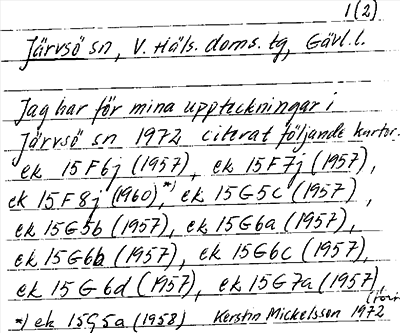 1(2)
Järvsö sn, V. Häls. doms. tg, Gävl. l.
Jag har för mina uppteckningar i
Järvsö sn 1972 citerat följande kartor:
ek 15F6j (1957), ek 15F7j (1957),
ek 15F8j (1960),*) ek 15G5c (1957),
ek 15G5b (1957), ek 15G6a (1957),
ek 15G6b (1957), ek 15G6c (1957),
ek 15G6d (1957), ek 15G7a (1957)
*) ek 15G5a (1958) Kerstin Mickelsson 1972